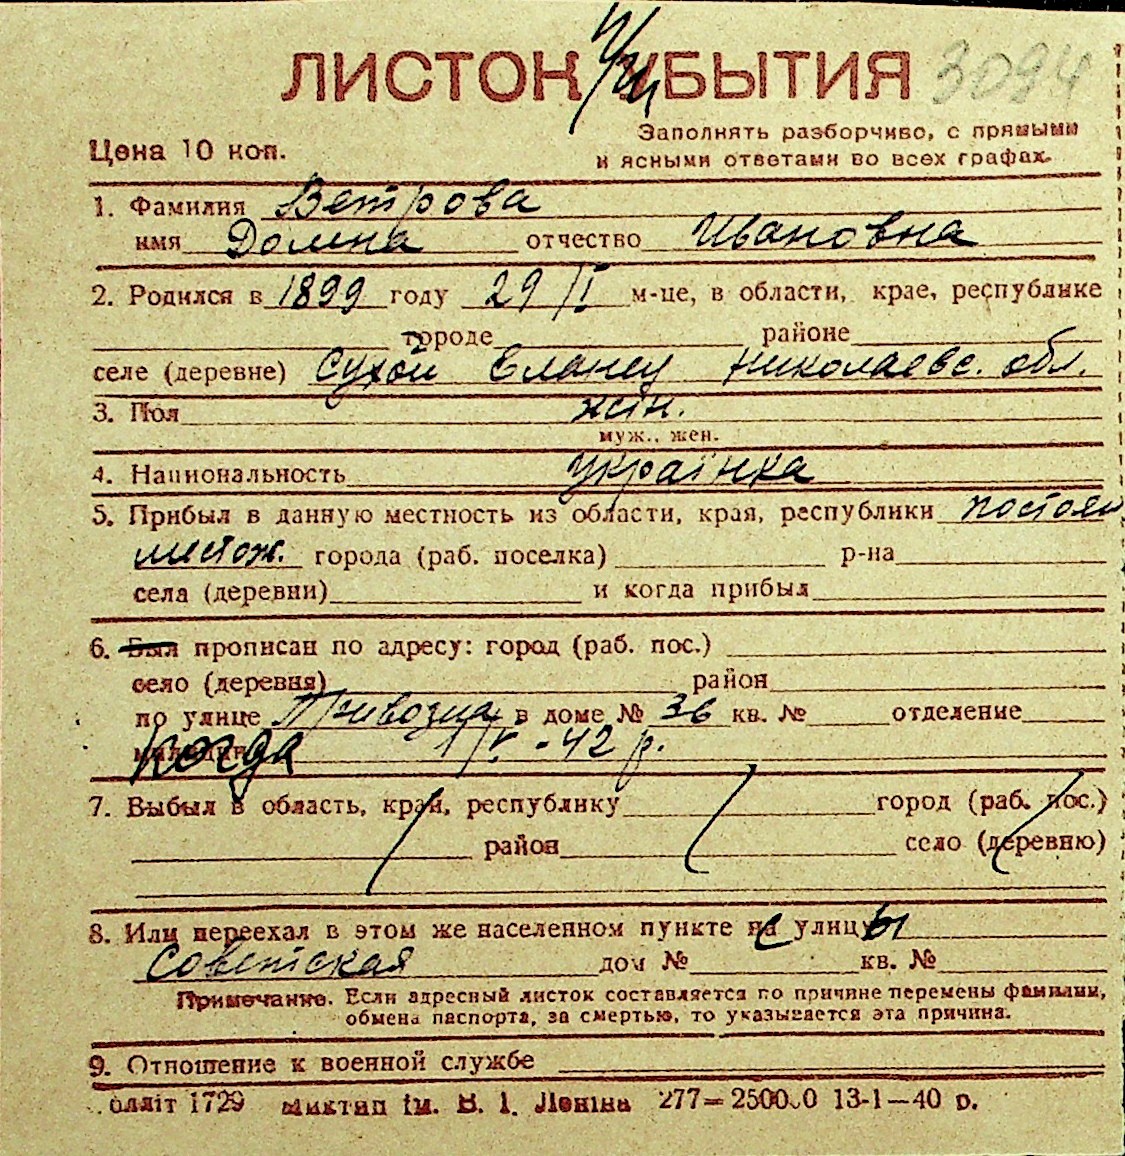 ЛИСТОК УБЫТИЯ 3094
Цена 10 коп.
Заполнять разборчиво, с прямыми
и ясными ответами во всех графах.
1. Фамилия Ветрова
имя Домна отчество Ивановна
2. Родился в 1899 году 29/I м-це, в области, крае, республике
городе районе
селе (деревне) Сухой Еланец Николаевс. обл.
3. Пол жін.
муж., жен.
4. Национальность українка
5. Прибыл в данную местность из области, края, республики постоян
местож. города (раб. поселка) р-на
села (деревни) и когда прибыл
6. Был прописан по адресу: город (раб. пос.)
село (деревня) район
по улице Привозна в доме № 36 кв. № отделение
когда 1/V-42 р.
7. Выбыл в область, край, республику город (раб. пос.)
район село (деревню)
8. Или переехал в этом же населенном пункте с улицы
Советская дом № кв. №
Примечание. Если адресный листок составляется по причине перемены фамилии,
обмена паспорта, за смертью, то указывается эта причина.
9. Отношение к военной службе
олліт 1729 Миктип ім. В. І. Леніна 277—250000 13-1—40 р.